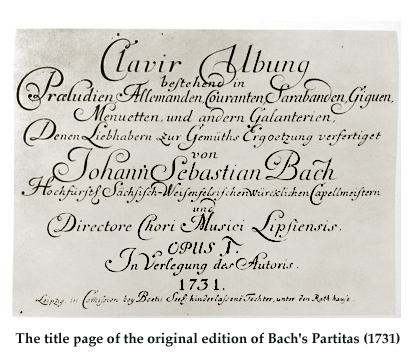 Clavir Ubung
bestehend in
Præludien, Allemanden, Couranten, Sarabanden, Giguen,
Menuetten, und andern Galanterien,
Denen Liebhabern zur Gemüths Ergoetzung verfertiget
von
Johann Sebastian Bach
Hochfürstl. Sächsisch-Weisenfelsischen würcklichen Capellmeistern
und
Directore Chori Musici Lipsiensis.
OPUS I.
In Verlegung des Autoris.
1731.
Leipzig, in Comission bey Boetii Seel. hinderlassene Tochter, unter den Rath-hause.
The title page of the original edition of Bach's Partitas (1731)